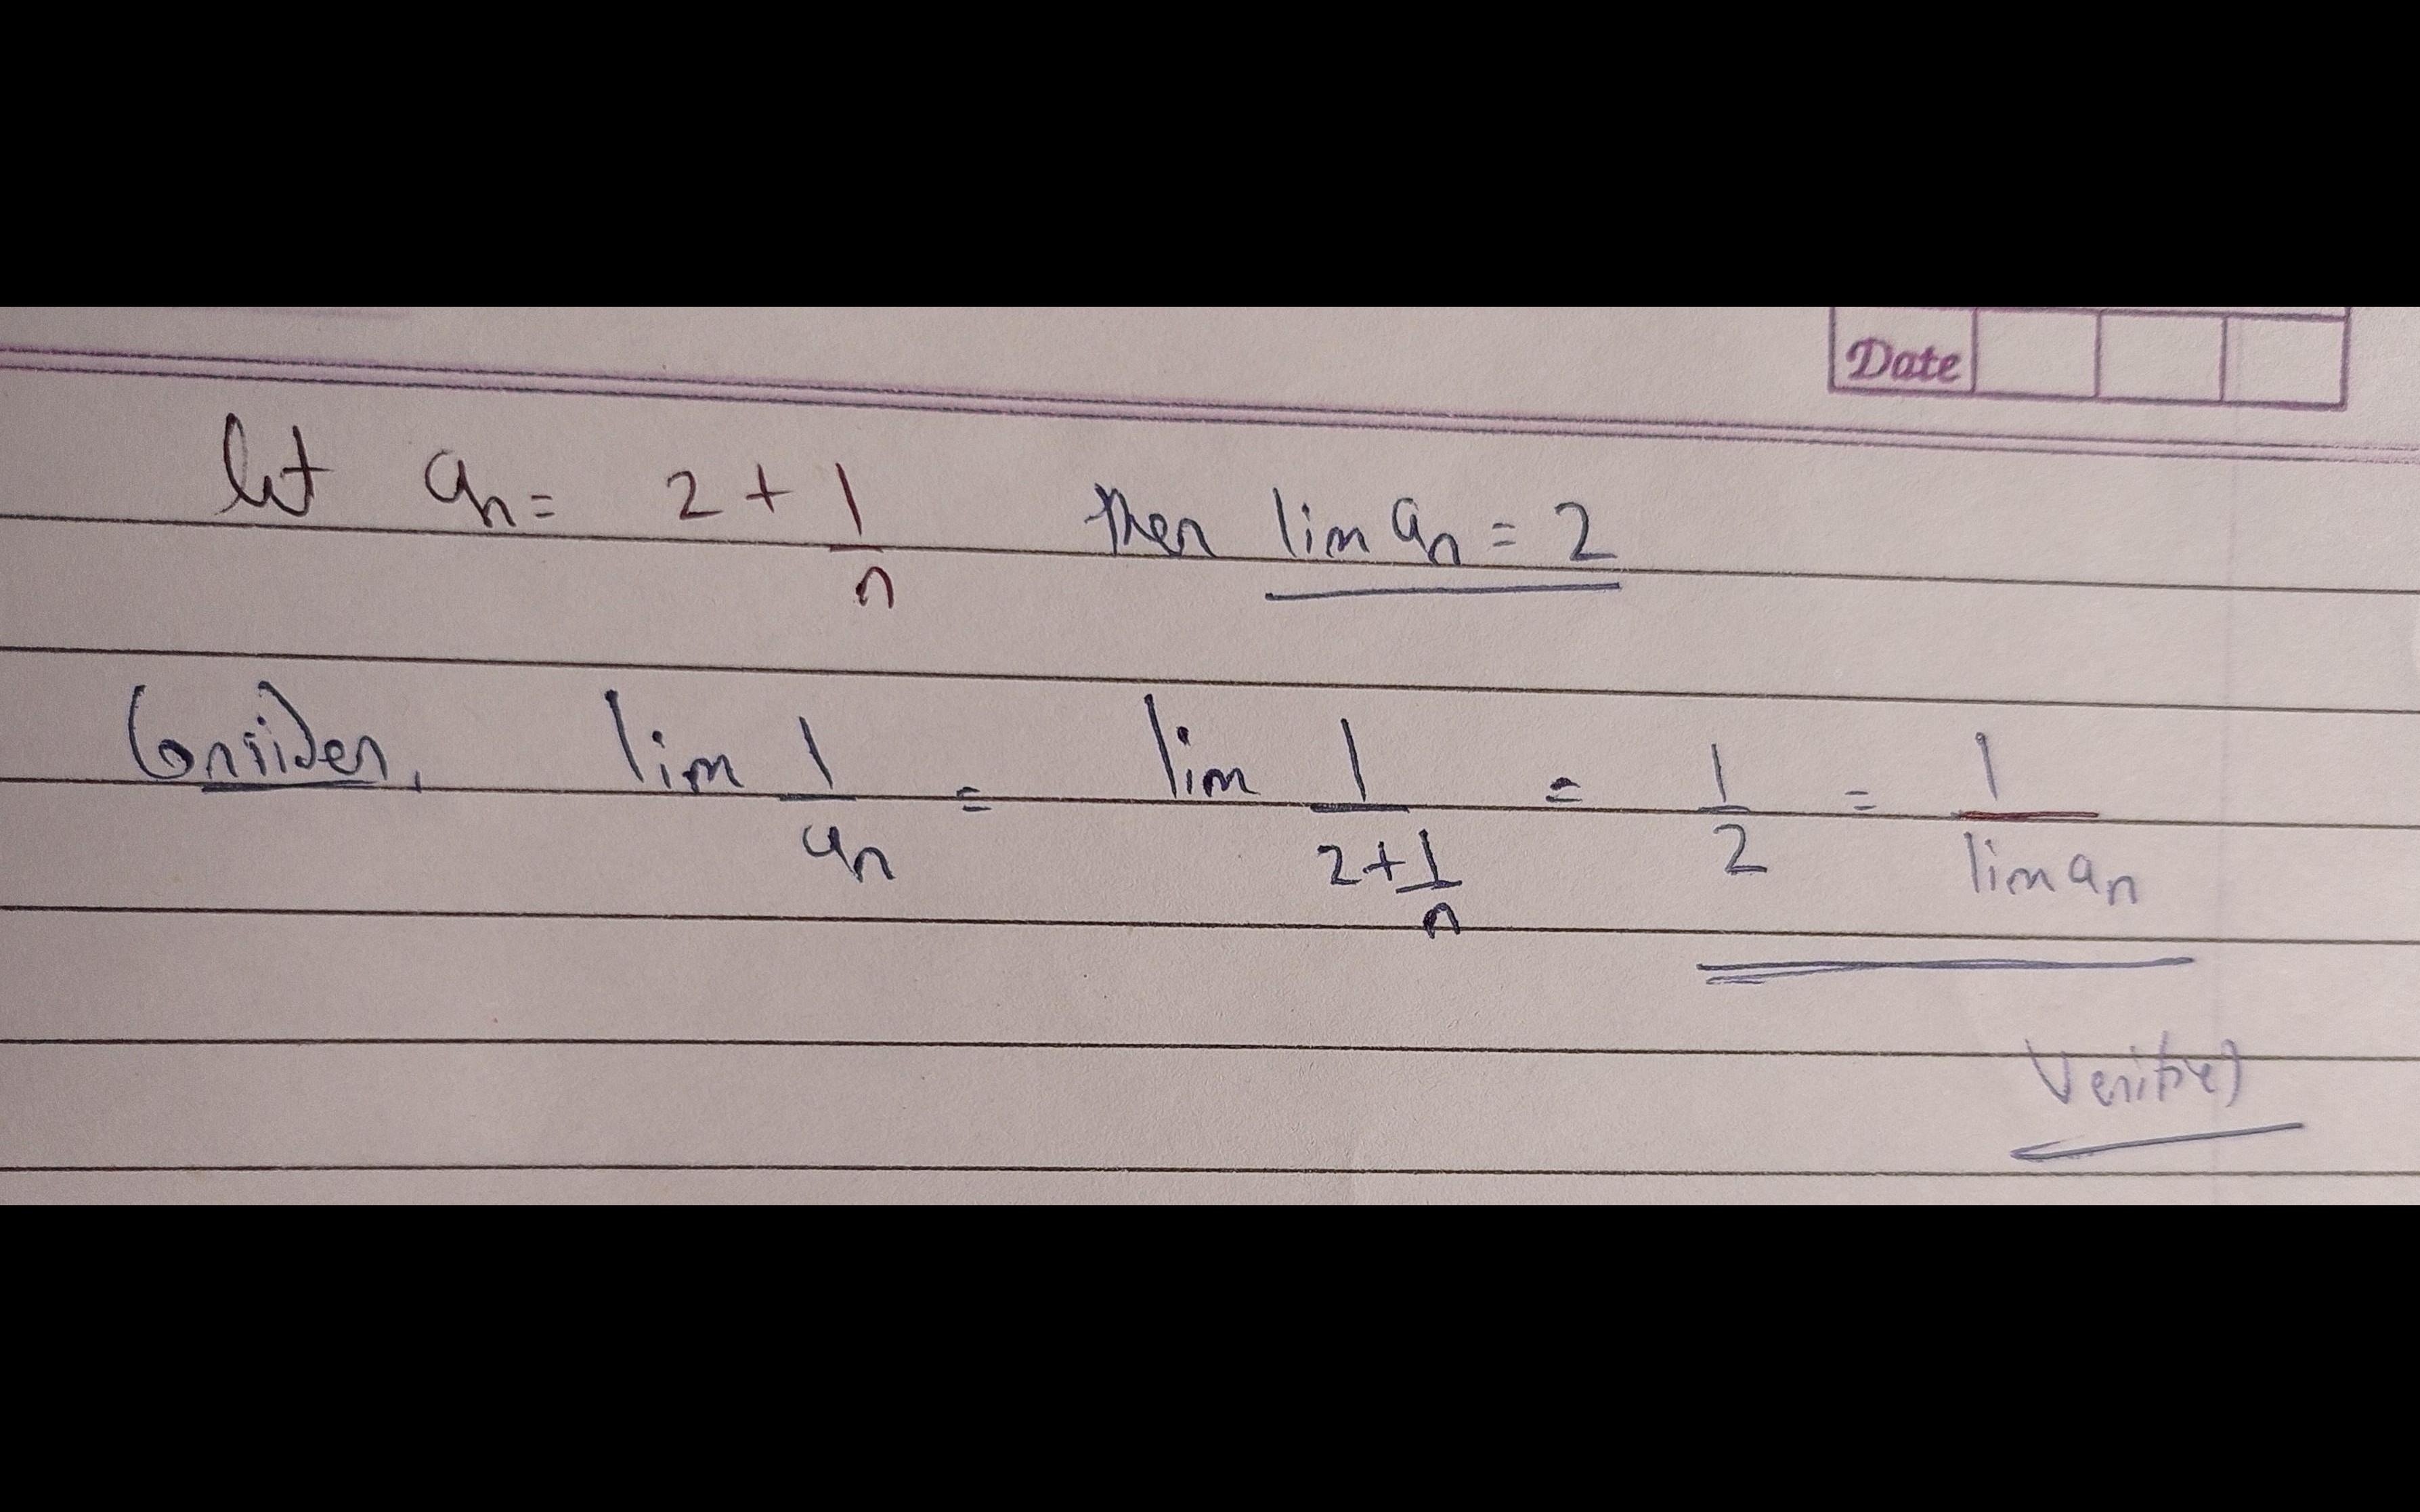 Date
let an = 2 + 1/n then lim an = 2
Consider, lim 1/an = lim 1/(2+1/n) = 1/2 = 1/lim an
Verified